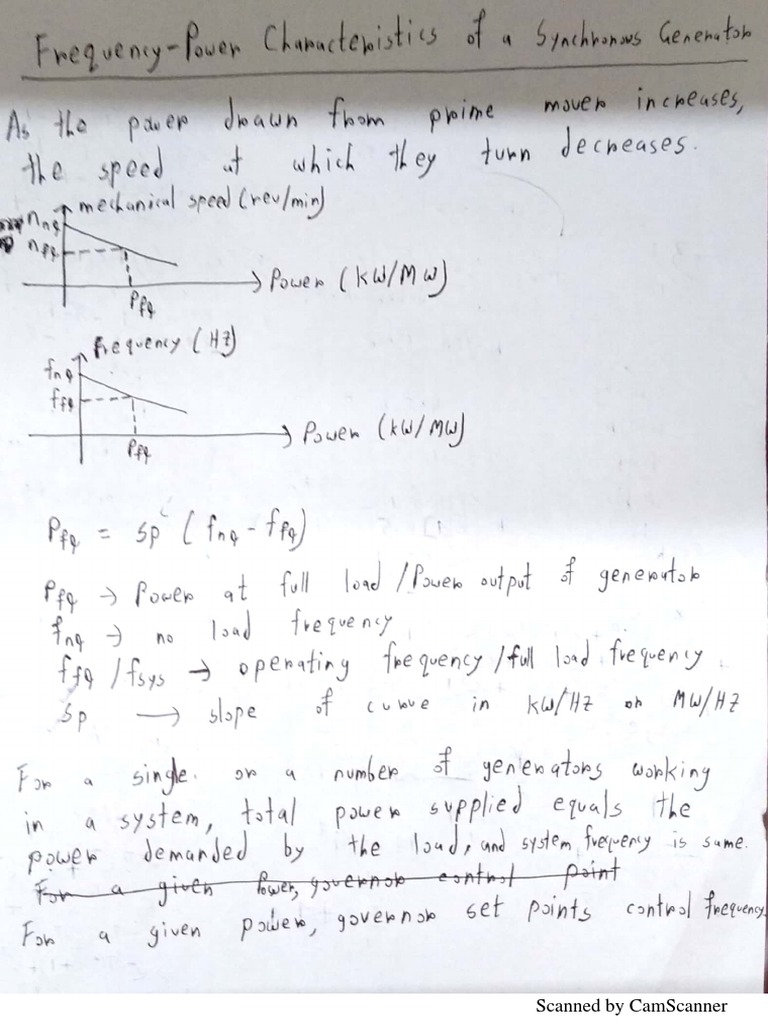 Frequency-Power Characteristics of a Synchronous Generator
As the power drawn from prime mover increases,
the speed at which they turn decreases.
mechanical speed (rev/min)
nnl
nfl
Power (kW/MW)
Pfl
frequency (HZ)
fnl
ffl
Power (kW/MW)
Pfl
Pfl = sp (fnl - ffl)
Pfl → Power at full load / Power output of generator
fnl → no load frequency
ffl / fsys → operating frequency / full load frequency
Sp → slope of curve in kW/HZ or MW/HZ
For a single or a number of generators working
in a system, total power supplied equals the
power demanded by the load, and system frequency is same.
For a given Power, governor control point
For a given power, governor set points control frequency.
Scanned by CamScanner